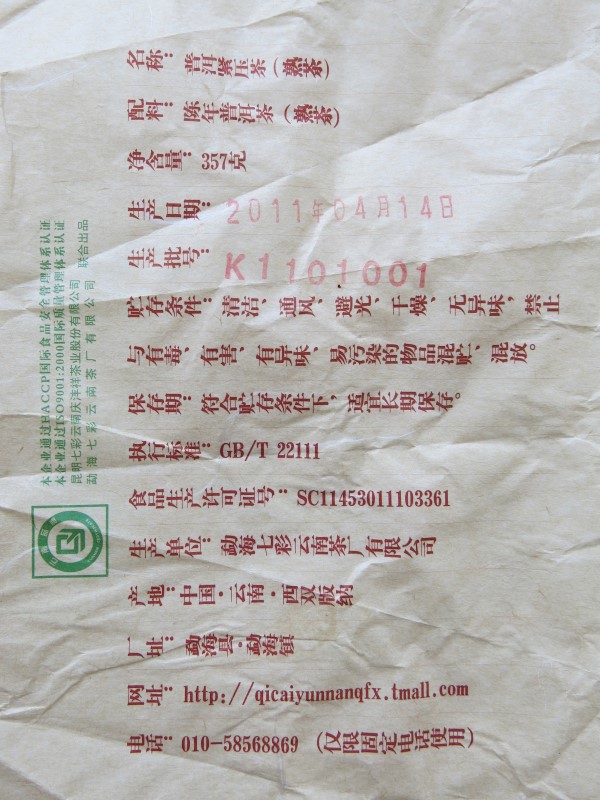 名称：普洱紧压茶（熟茶）
配料：陈年普洱茶（熟茶）
净含量：357克
生产日期：2011年04月14日
生产批号：K1101001
贮存条件：清洁、通风、避光、干燥、无异味，禁止
与有毒、有害、有异味、易污染的物品混贮、混放。
保存期：符合贮存条件下，适宜长期保存。
执行标准：GB/T 22111
食品生产许可证号：SC11453011103361
生产单位：勐海七彩云南茶厂有限公司
产地：中国·云南·西双版纳
厂址：勐海县·勐海镇
网址：http://qicaiyunnanqfx.tmall.com
电话：010-58568869（仅限固定电话使用）
本企业通过HACCP国际食品安全管理体系认证
本企业通过ISO9001:2000国际质量管理体系认证
昆明七彩云南庆沣祥茶业股份有限公司
勐海七彩云南茶厂有限公司
联合出品